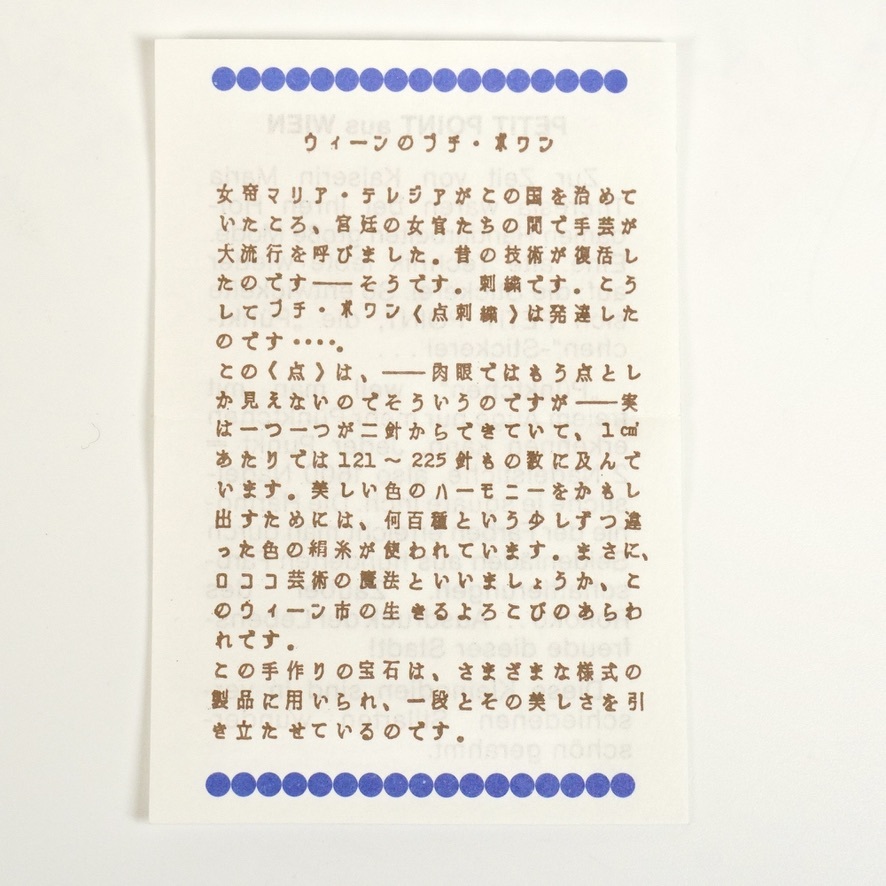 ウィーンのプチ・ポワン
女帝マリア・テレジアがこの国を治めて
いたころ、宮廷の女官たちの間で手芸が
大流行を呼びました。昔の技術が復活し
たのです――そうです。刺繍です。こう
してプチ・ポワン《点刺繍》は発達した
のです‥‥。
この《点》は、――肉眼ではもう点とし
か見えないのでそういうのですが――実
は一つ一つが二針からできていて、1㎠
あたりでは121～225針もの数に及んで
います。美しい色のハーモニーをかもし
出すためには、何百種という少しずつ違
った色の絹糸が使われています。まさに、
ロココ芸術の魔法といいましょうか、こ
のウィーン市の生きるよろこびのあらわ
れです。
この手作りの宝石は、さまざまな様式の
製品に用いられ、一段とその美しさを引
き立たせているのです。